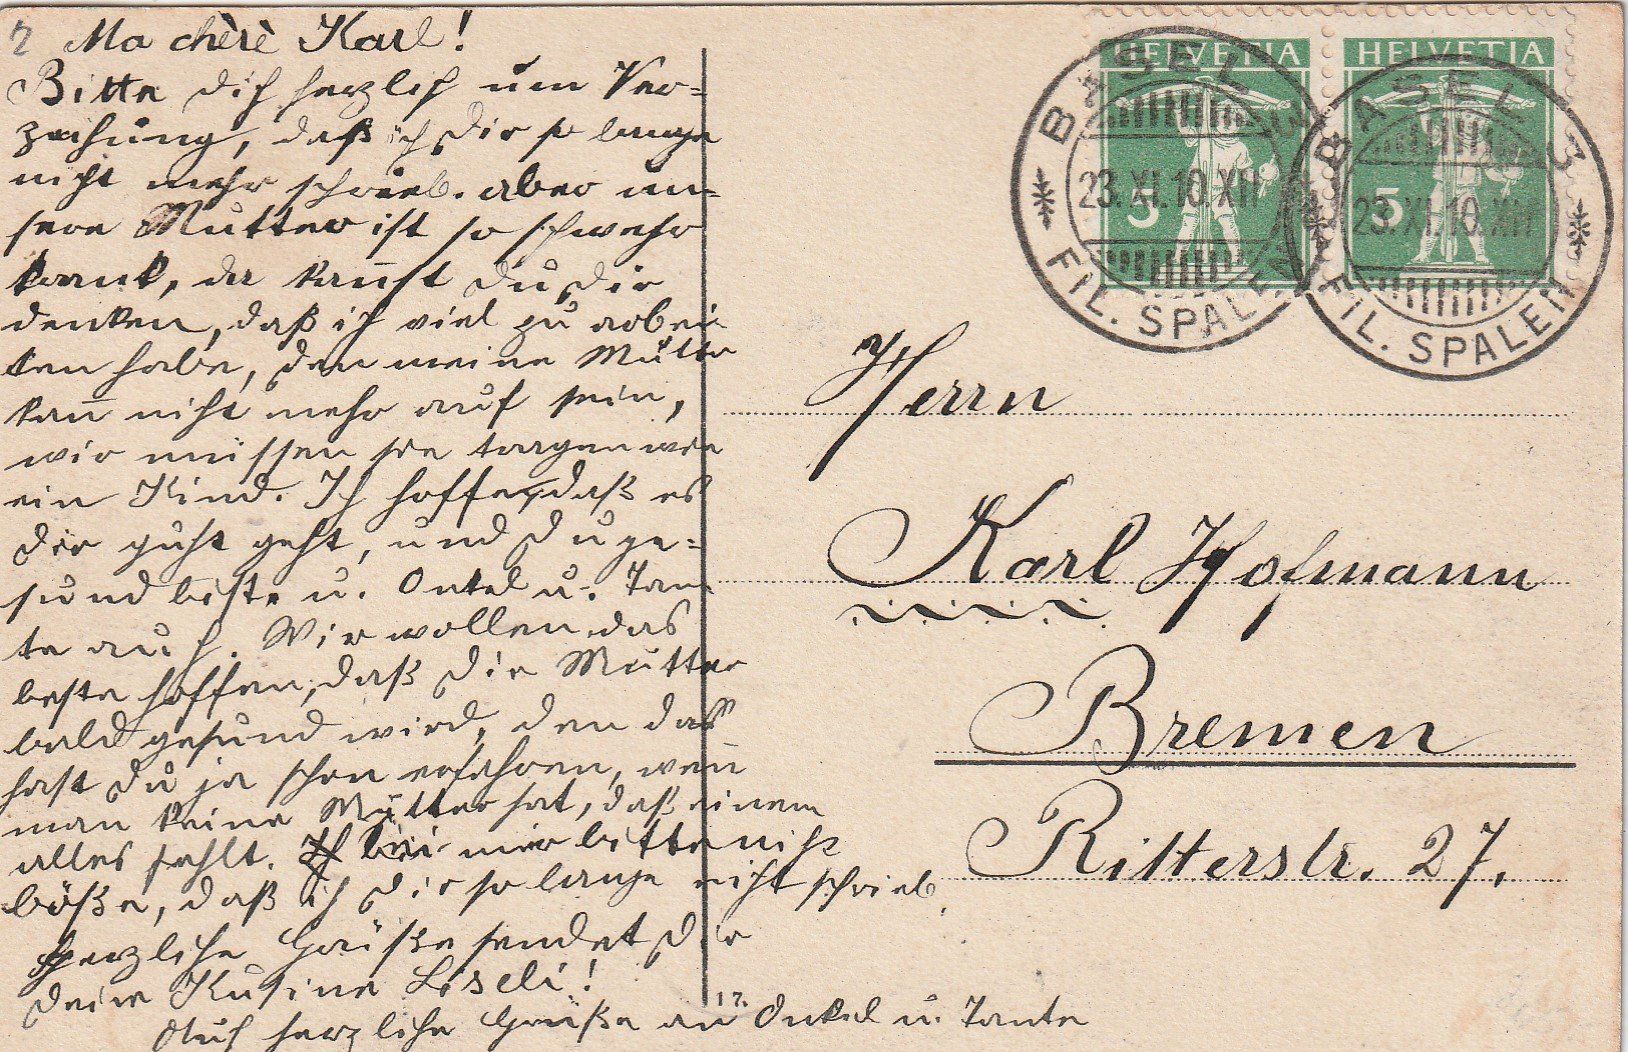 2
Ma chèrè Karl!
Bitte dich herzlich um Ver=
zeihung, daß ich Dir so lange
nicht mehr schrieb. aber un=
sere Mutter ist so schwehr
krank, da kannst Du Dir
denken, daß ich viel zu arbei
ten habe, den meine Mutter
kan̅ nicht mehr auf sein,
wir müssen sie tragen wie
ein Kind. Ich hoffe, daß es
Dir guht geht, und Du ge=
sund bist u. Onkel u. Tan
te auch. Wir wollen das
beste hoffen, daß die Mutter
bald gesund wird, den das
hast Du ja schon erfahren, wen̅
man keine Mutter hat, daß einem
alles fehlt. bei mir bitte nicht
böße, daß ich Dir so lange nicht schrieb.
Herzliche Grüße sendet Dir
Deine Kusine Liseli!
Auch herzliche Grüße an Onkel u. Tante
17.
HELVETIA
5
HELVETIA
5
BASEL 3
23.XI.10.XII
FIL. SPALEN
BASEL 3
23.XI.10.XII
FIL. SPALEN
Herrn
Karl Hofmann
Bremen
Ritterstr. 27.